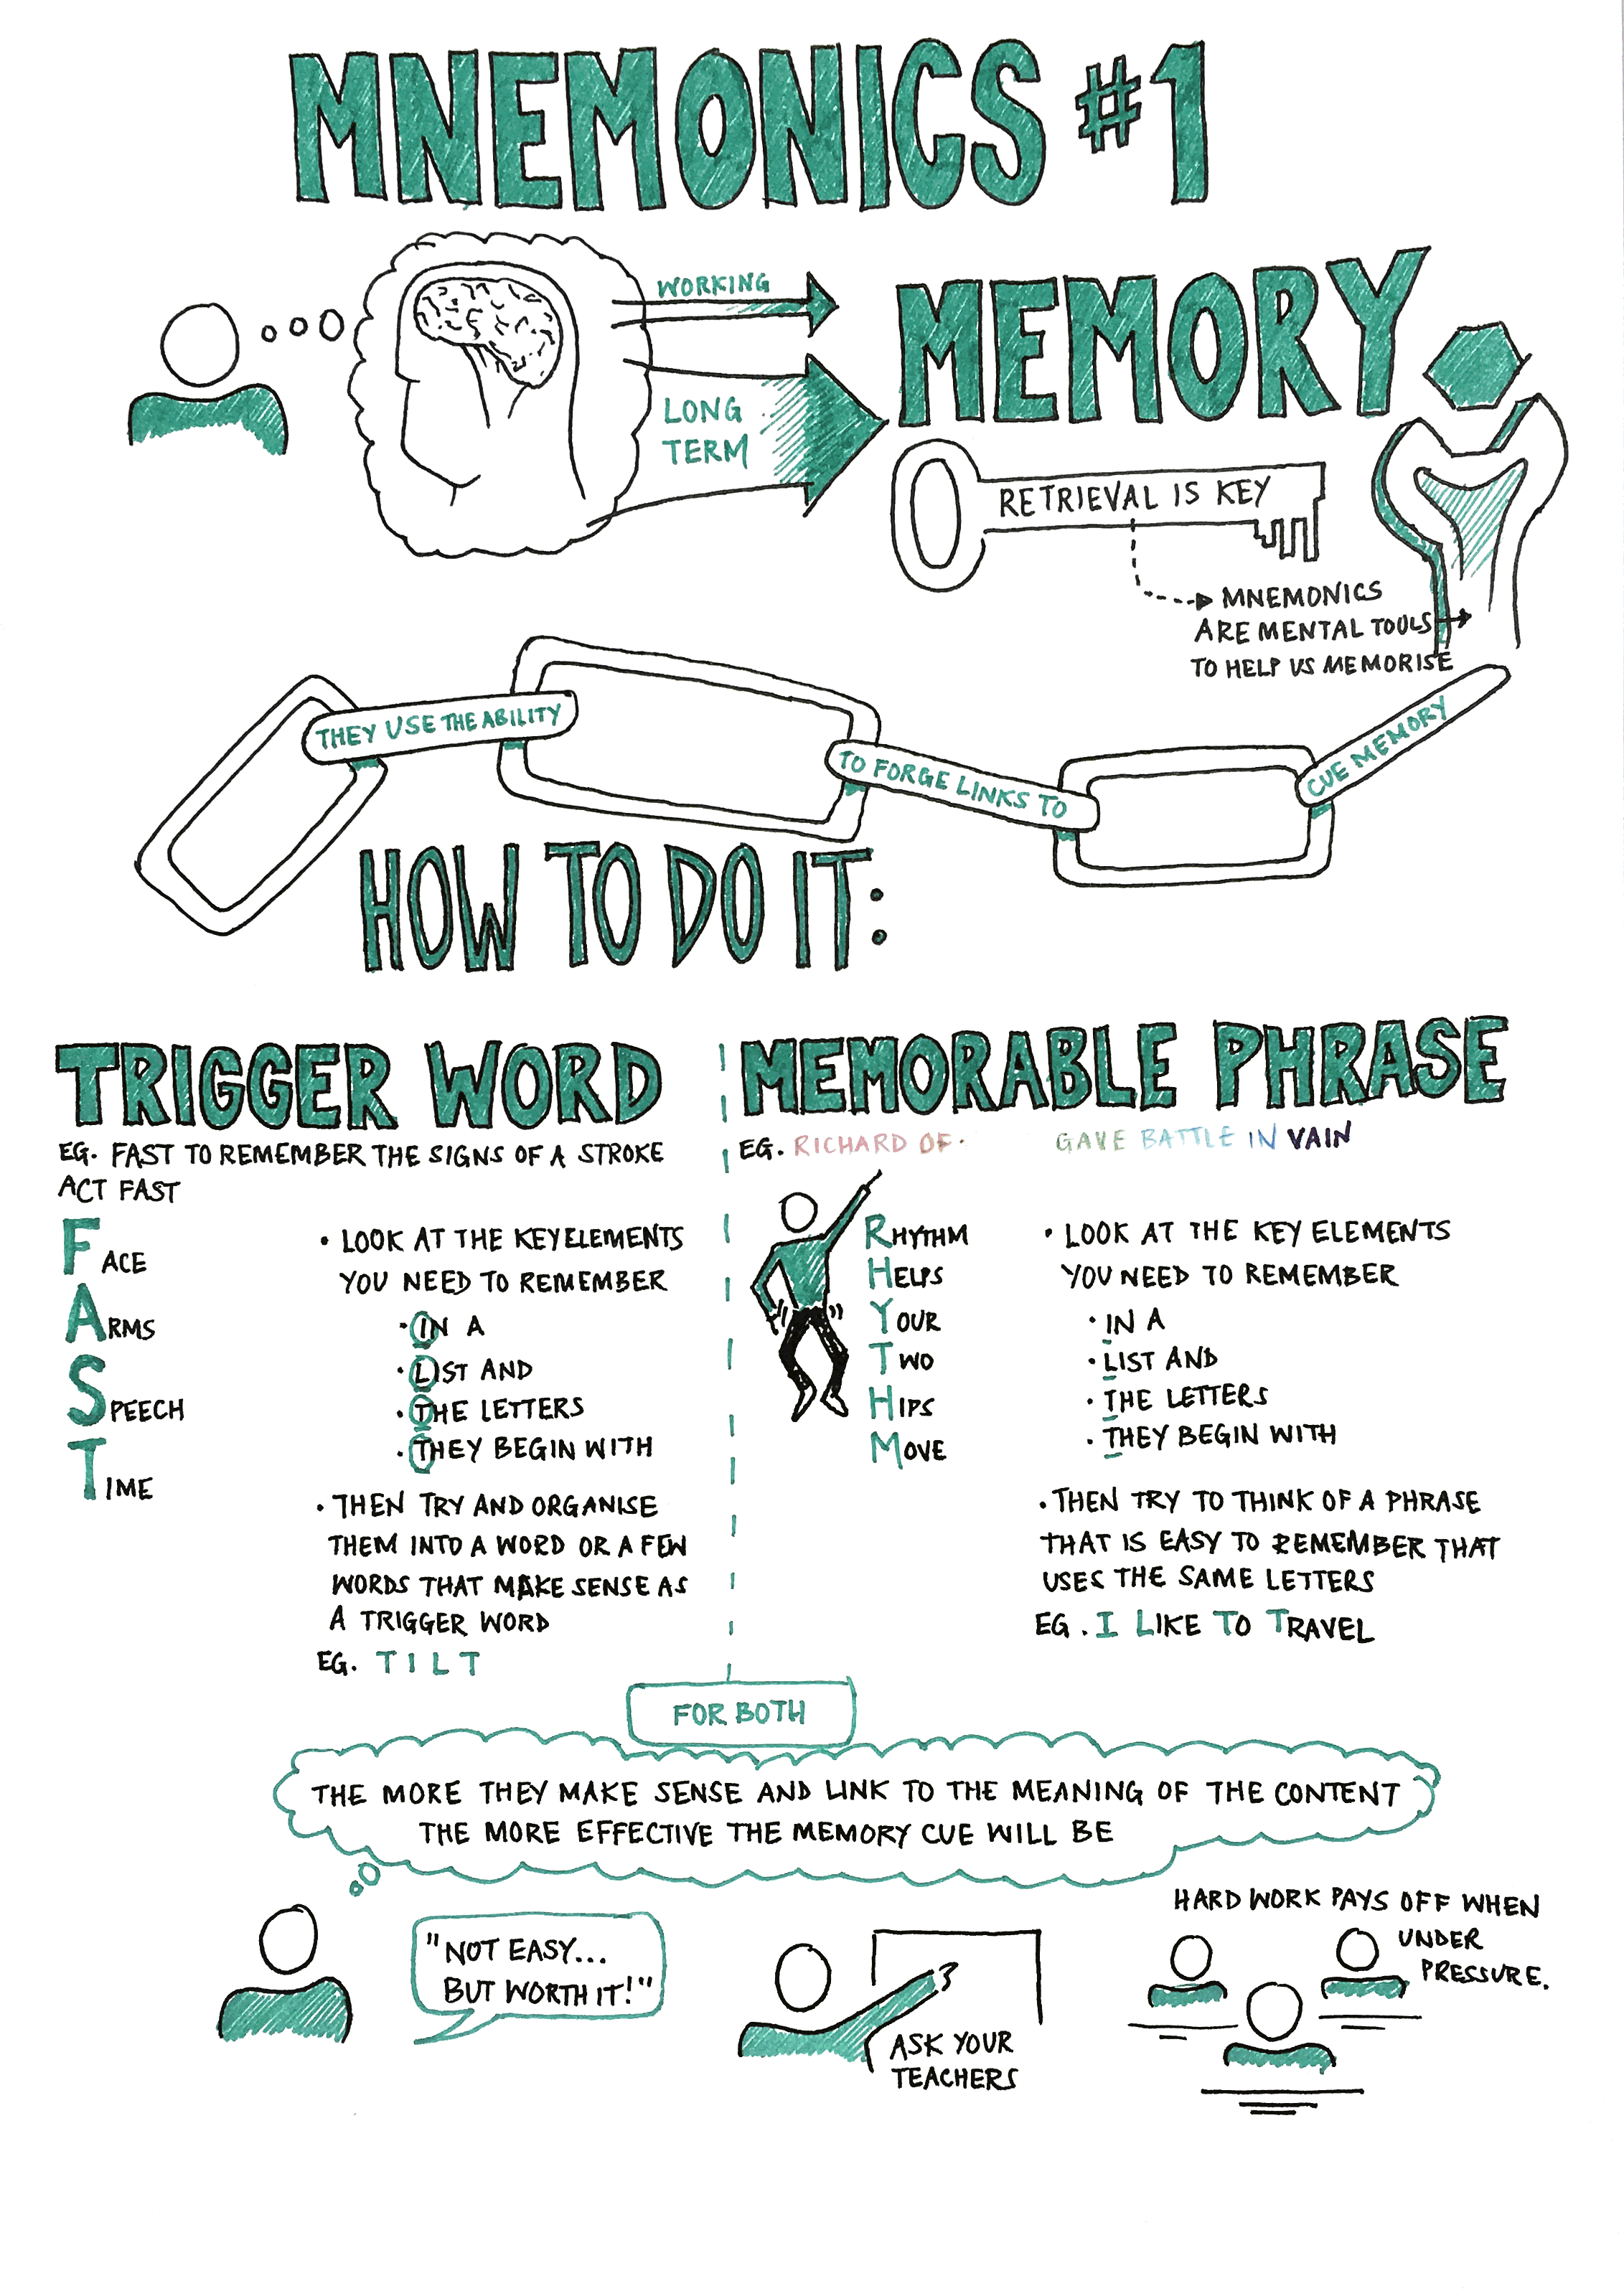 MNEMONICS #1
WORKING
LONG
TERM
MEMORY
RETRIEVAL IS KEY
MNEMONICS
ARE MENTAL TOOLS
TO HELP US MEMORISE
THEY USE THE ABILITY
TO FORGE LINKS TO
CUE MEMORY
HOW TO DO IT:
TRIGGER WORD
EG. FAST TO REMEMBER THE SIGNS OF A STROKE
ACT FAST
FACE
ARMS
SPEECH
TIME
• LOOK AT THE KEY ELEMENTS
YOU NEED TO REMEMBER
• IN A
• LIST AND
• THE LETTERS
• THEY BEGIN WITH
• THEN TRY AND ORGANISE
THEM INTO A WORD OR A FEW
WORDS THAT MAKE SENSE AS
A TRIGGER WORD
EG. TILT
MEMORABLE PHRASE
EG. RICHARD OF. GAVE BATTLE IN VAIN
RHYTHM
HELPS
YOUR
TWO
HIPS
MOVE
• LOOK AT THE KEY ELEMENTS
YOU NEED TO REMEMBER
• IN A
• LIST AND
• THE LETTERS
• THEY BEGIN WITH
• THEN TRY TO THINK OF A PHRASE
THAT IS EASY TO REMEMBER THAT
USES THE SAME LETTERS
EG. I LIKE TO TRAVEL
FOR BOTH
THE MORE THEY MAKE SENSE AND LINK TO THE MEANING OF THE CONTENT
THE MORE EFFECTIVE THE MEMORY CUE WILL BE
"NOT EASY...
BUT WORTH IT!"
ASK YOUR
TEACHERS
HARD WORK PAYS OFF WHEN
UNDER
PRESSURE.